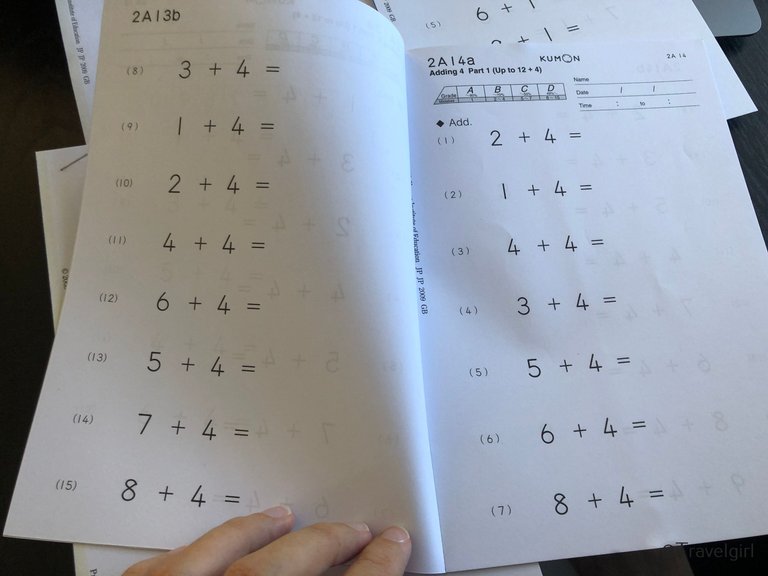 2A13b
(8) 3 + 4 =
(9) 1 + 4 =
(10) 2 + 4 =
(11) 4 + 4 =
(12) 6 + 4 =
(13) 5 + 4 =
(14) 7 + 4 =
(15) 8 + 4 =
(5) 6 + 1
2A14a KUMON 2A 14
Adding 4 Part 1 (Up to 12 + 4)
Grade A B C D
Name
Date / /
Time : to :
◆ Add.
(1) 2 + 4 =
(2) 1 + 4 =
(3) 4 + 4 =
(4) 3 + 4 =
(5) 5 + 4 =
(6) 6 + 4 =
(7) 8 + 4 =
Institute of Education JP JP 2009 GB
Travelgirl